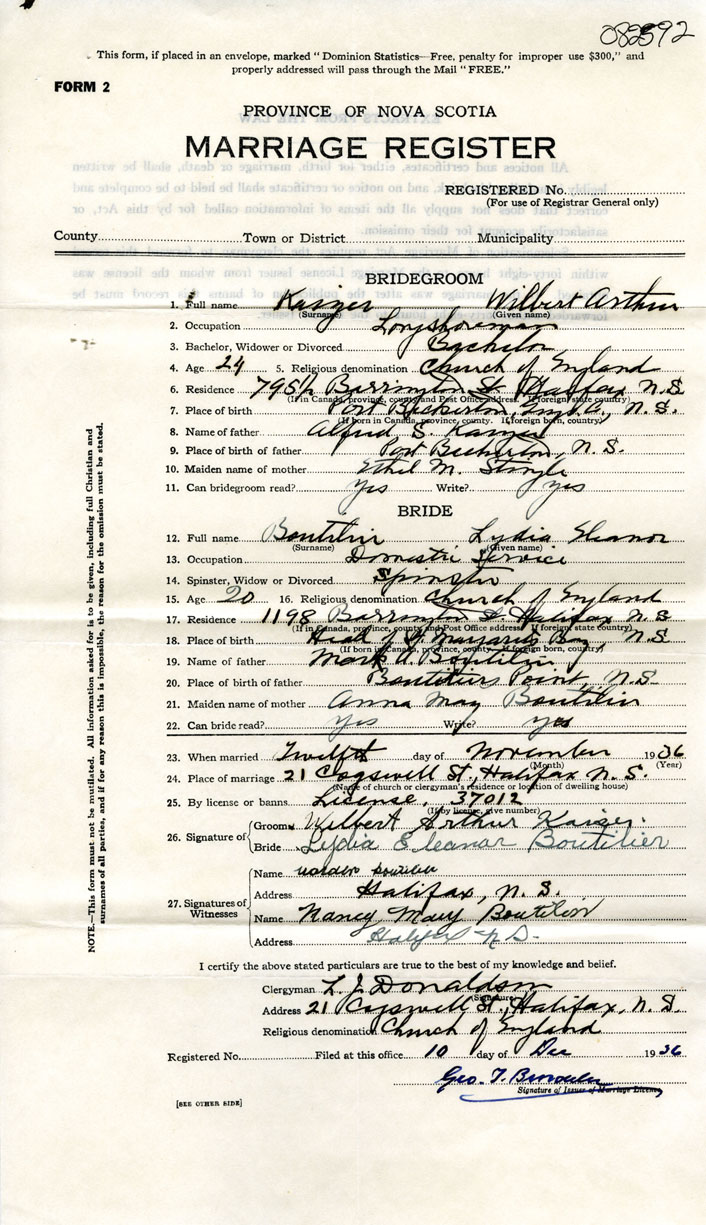 082592
This form, if placed in an envelope, marked "Dominion Statistics—Free, penalty for improper use $300," and
properly addressed will pass through the Mail "FREE."
FORM 2
PROVINCE OF NOVA SCOTIA
MARRIAGE REGISTER
REGISTERED No.
(For use of Registrar General only)
County Town or District Municipality
BRIDEGROOM
1. Full name Kaizer Wilbert Arthur
(Surname) (Given name)
2. Occupation Longshoreman
3. Bachelor, Widower or Divorced Bachelor
4. Age 24 5. Religious denomination Church of England
6. Residence 795½ Barrington St Halifax N.S.
(If in Canada, province, county and Post Office address. If foreign state country)
7. Place of birth Port Bickerton, N.S.
(If born in Canada, province, county. If foreign born, country)
8. Name of father Alfred S. Kaizer
9. Place of birth of father Port Bickerton, N.S.
10. Maiden name of mother Ethel M.
11. Can bridegroom read? Yes Write? Yes
BRIDE
12. Full name Boutilier Lydia Eleanor
(Surname) (Given name)
13. Occupation Domestic Service
14. Spinster, Widow or Divorced Spinster
15. Age 20 16. Religious denomination Church of England
17. Residence 1198 Barrington St Halifax N.S
(If in Canada, province, county and Post Office address. If foreign state country)
18. Place of birth Head of St. Margarets Bay N.S
(If born in Canada, province, county. If foreign born, country)
19. Name of father Mark A. Boutilier
20. Place of birth of father Boutiliers Point, N.S.
21. Maiden name of mother Anna May Boutilier
22. Can bride read? Yes Write? Yes
23. When married Twelfth day of November 1936
(Month) (Year)
24. Place of marriage 21 Cogswell St., Halifax N.S.
(Name of church or clergyman's residence or location of dwelling house)
25. By license or banns License, 37012
(If by license, give number)
26. Signature of Groom Wilbert Arthur Kaiser.
Bride Lydia Eleanor Boutilier
27. Signatures of Witnesses
Name Boutilier
Address Halifax, N.S.
Name Nancy Mary Boutilier
Address Halifax N.S.
I certify the above stated particulars are true to the best of my knowledge and belief.
Clergyman L. J. Donaldson
(Signature)
Address 21 Cogswell St., Halifax, N.S.
Religious denomination Church of England
Registered No. Filed at this office 10 day of Dec 1936
Geo. T.
Signature of Issuer of Marriage License
[SEE OTHER SIDE]
NOTE.—This form must not be mutilated. All information asked for is to be given, including full Christian and
surnames of all parties, and if for any reason this is impossible, the reason for the omission must be stated.